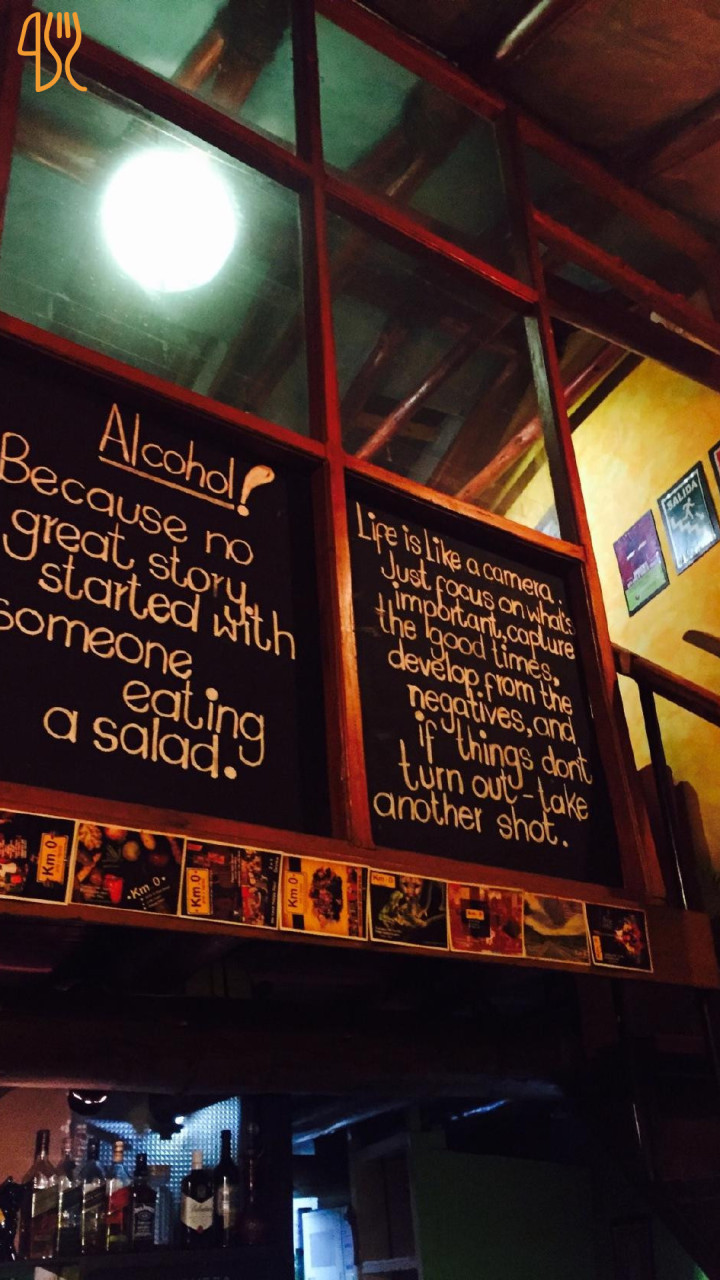 Alcohol!
Because no
great story
started with
someone
eating
a salad.
Life is like a camera.
Just focus on what's
important, capture
the good times,
develop from the
negatives, and
if things dont
turn out - take
another shot.
SALIDA
Km 0
Km 0
Km 0
Km 0
Km 0